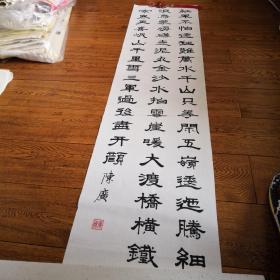 紅軍不怕遠征難萬水千山只等閒五嶺逶迤騰細
浪烏蒙磅礴走泥丸金沙水拍雲崖暖大渡橋橫鐵
索寒更喜岷山千里雪三軍過後盡開顏 陳廣